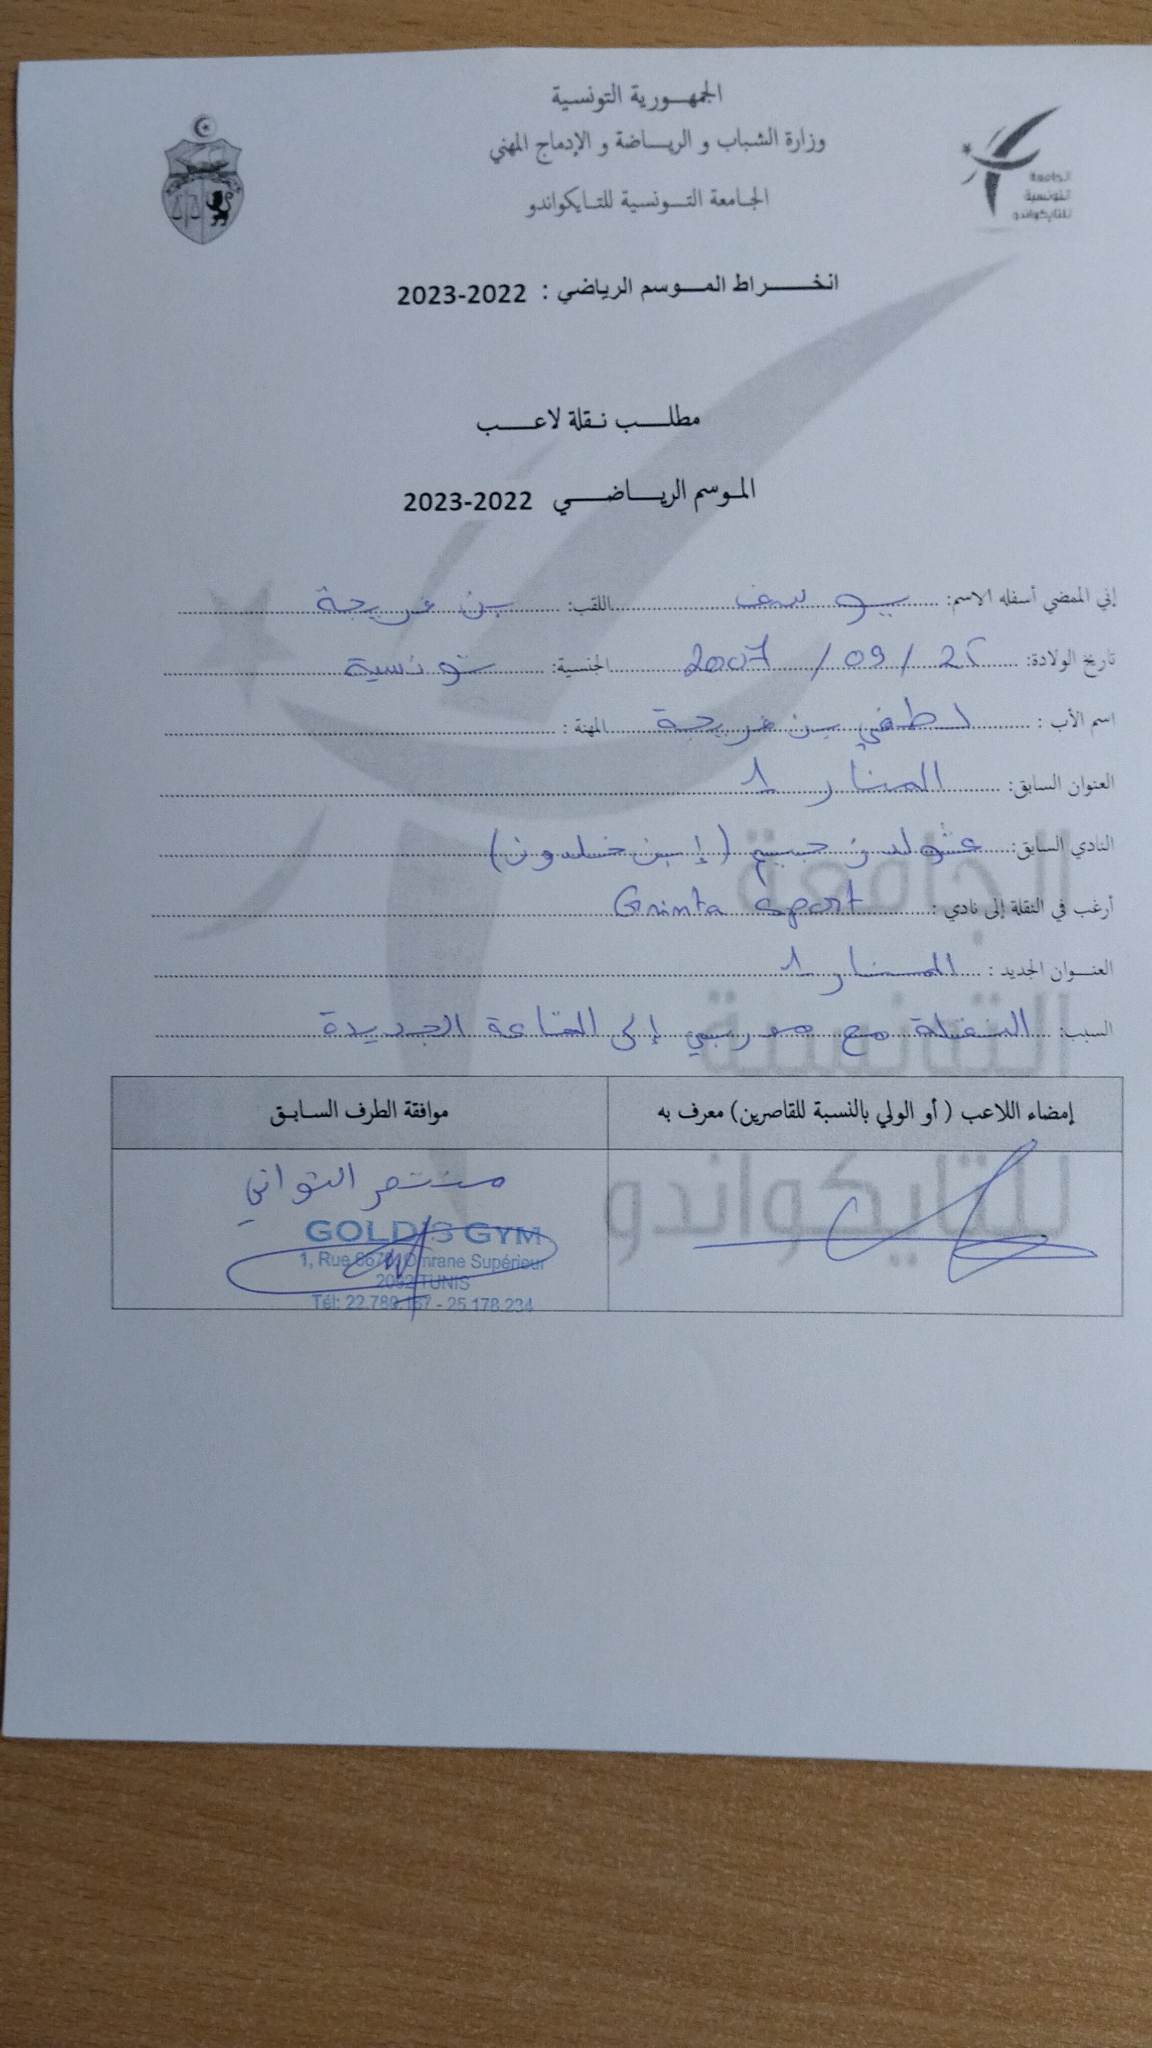 الجمهورية التونسية
وزارة الشباب و الرياضة و الإدماج المهني
الجامعة التونسية للتايكواندو
الجامعة
التونسية
للتايكواندو
انخراط الموسم الرياضي : 2022-2023
مطلب نقلة لاعب
الموسم الرياضي 2022-2023
إني الممضي أسفله الاسم: يوسف اللقب: بن فريجة
تاريخ الولادة: 25 / 09 / 2007 الجنسية: تونسية
اسم الأب : لطفي بن فريجة المهنة :
العنوان السابق: المنار 1
النادي السابق: جيم (إبن خلدون)
أرغب في النقلة إلى نادي : Grinta Sport
العنوان الجديد : المنار 1
السبب: النقلة مع مدربي إلى القاعة الجديدة
الجامعة
التونسية
للتايكواندو
إمضاء اللاعب ( أو الولي بالنسبة للقاصرين) معرف به
موافقة الطرف السابق
منتصر التواتي
GOLD'S GYM
1, Rue Omrane Supérieur
TUNIS
Tél: - 25.178.234